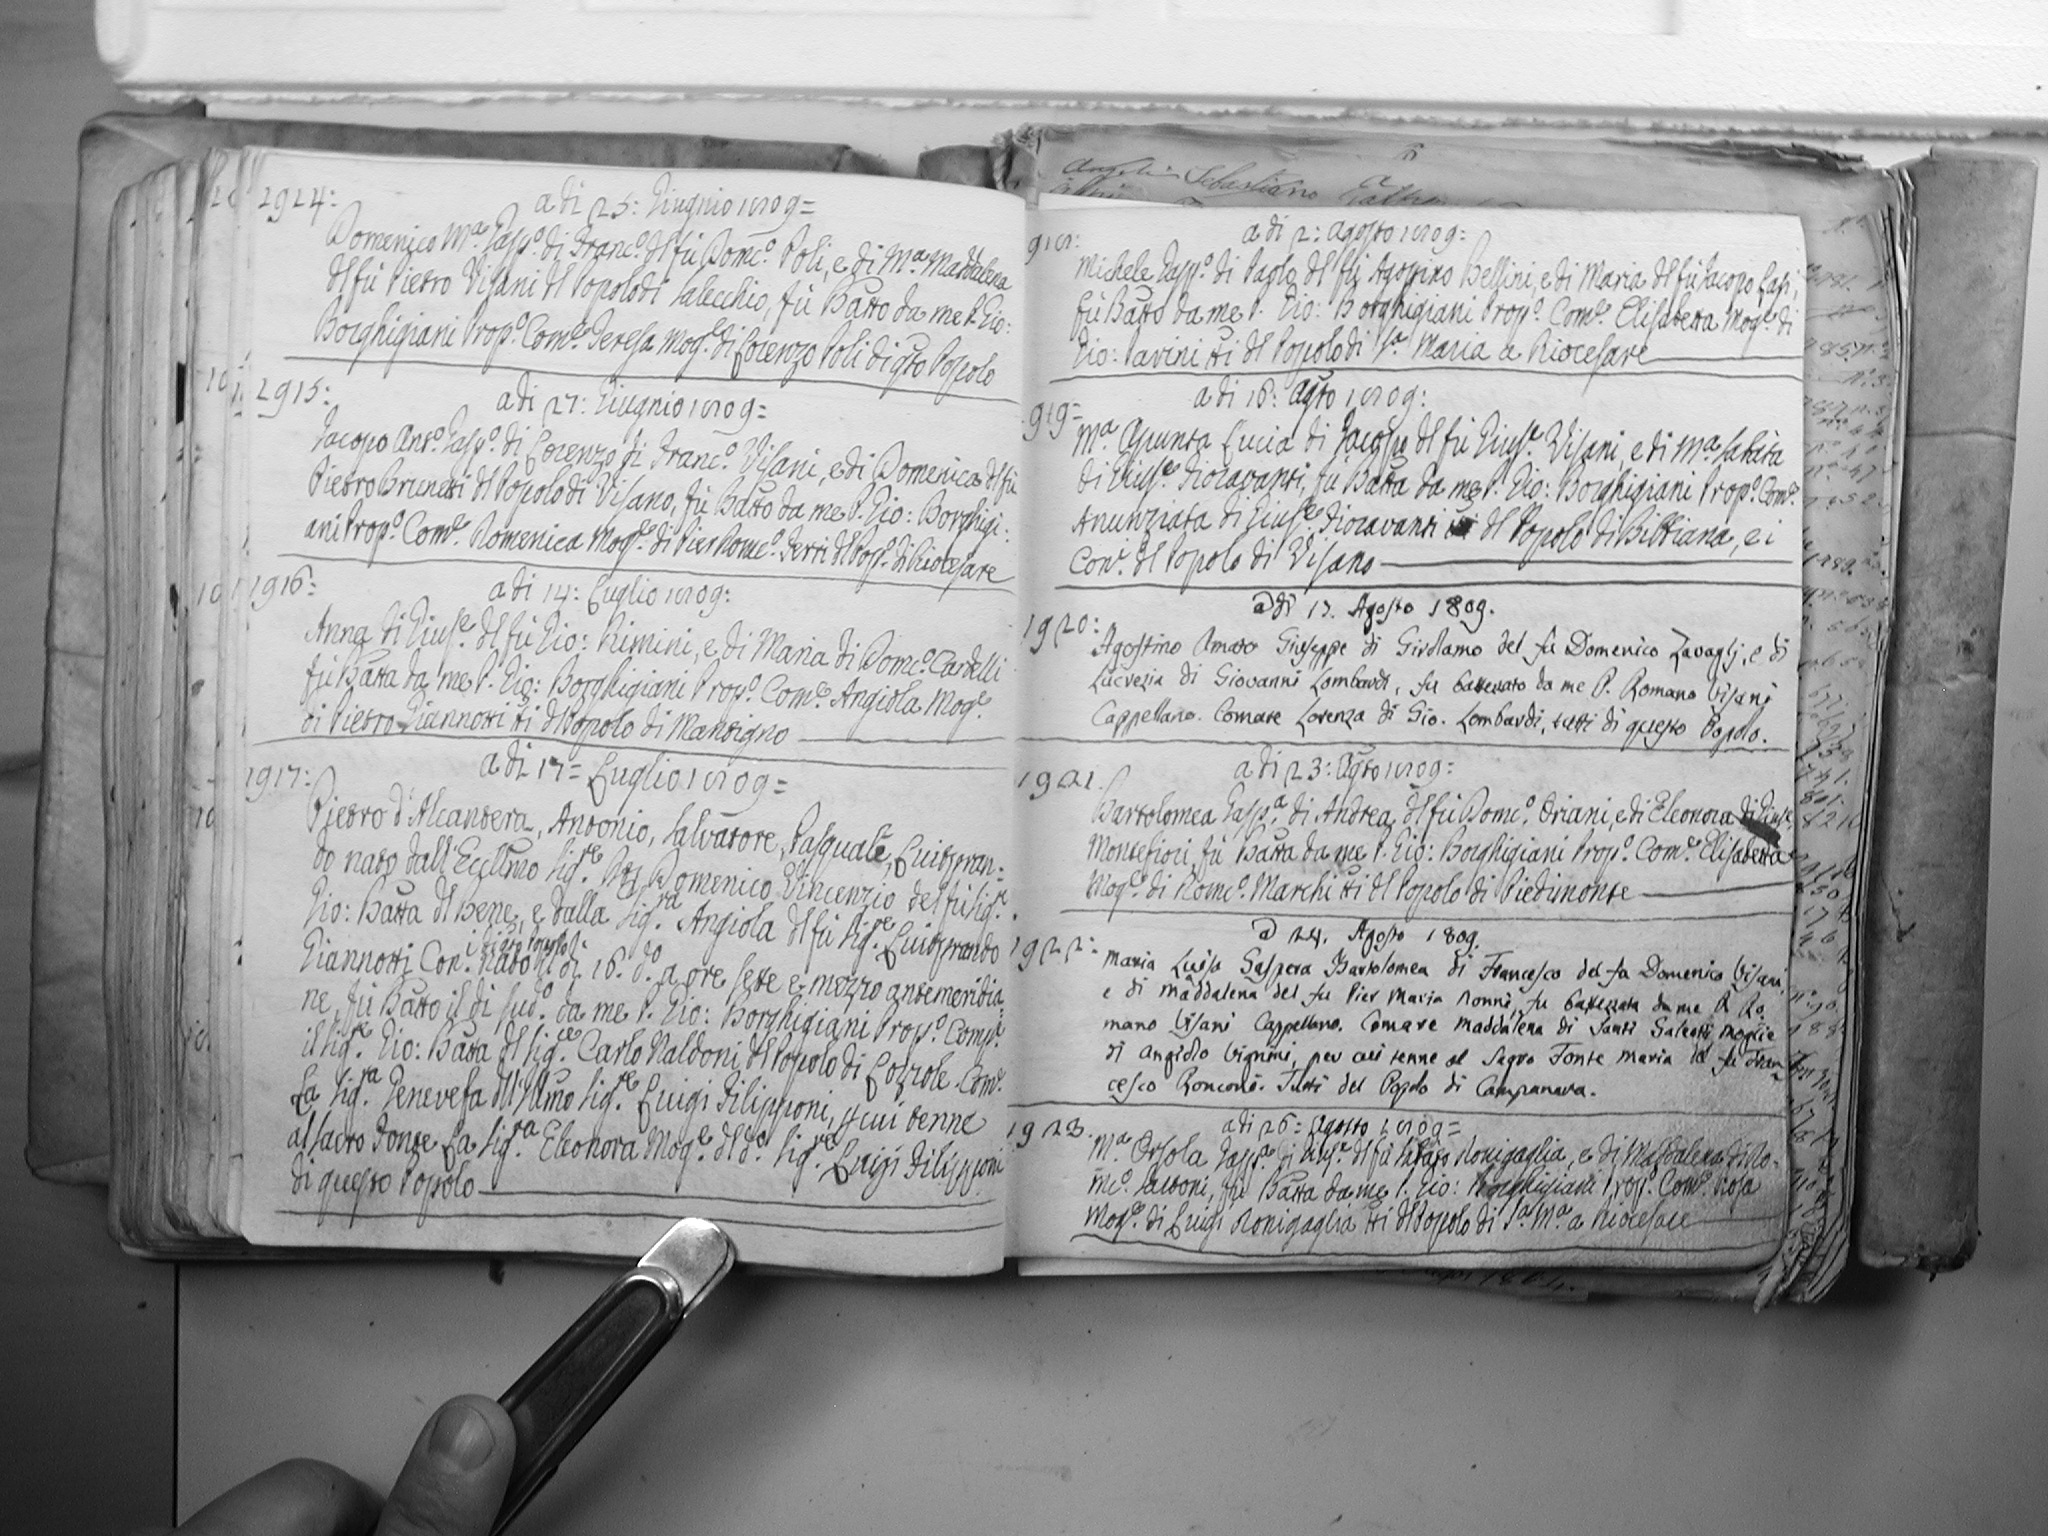 1914:
a di 25: Giugnio 1809=
Domenico Mᵃ Gasp.º di Franc.º dl fù Dom.cº Poli, e di Mᵃ Maddalena
dl fù Pietro Visani dl Popolo di Salecchio, fù Batto da me P. Gio:
Borghigiani Prop.º Com.e Teresa Mog.e di Lorenzo Poli di qto Popolo
1915:
a di 27: Giugnio 1809=
Jacopo Ant.º Gasp.º di Lorenzo di Franc.º Visani, e di Domenica dl fù
Pietro Brunetti dl Popolo di Visano, fù Batto da me P. Gio: Borghigi:
ani Prop.º Com.e Domenica Mog.e di Pier Dom.cº Ferri dl Pop.º di Riocesare
1916:
a di 14: Luglio 1809:
Anna di Gius.e dl fù Gio: Rimini, e di Maria di Dom.cº Cardelli
fù Batta da me P. Gio: Borghigiani Prop.º Com.e Angiola Mog.e
di Pietro Giannotti tti dl Popolo di Mantigno
1917:
a di 17= Luglio 1809=
Pietro d'Alcantera, Antonio, Salvatore, Pasquale, Luitpran=
do nato dall'Ecc.llmo Sig.re Domenico Vincenzio del fù Sig.re
Gio: Batta dl Bene, e dalla Sig.ra Angiola dl fù Sig.re Luitprando
Giannotti Con. di qto Popolo
nato il di 16. dº a ore sette e mezzo antemeridia=
ne, fù Batto il di sud.º da me P. Gio: Borghigiani Prop.º Comp.e
il Sig.re Gio: Batta dl Sig.re Carlo Naldoni dl Popolo di Lozzole. Com.e
La Sig.ra Genevefa dll'Illmo Sig.re Luigi Filipponi, p cui tenne
al sacro Fonte La Sig.ra Eleonora Mog.e dl dº Sig.re Luigi Filipponi
di questo Popolo
918:
a di 2: Agosto 1809:
Michele Gasp.º di Paolo dl fù Agostino Bellini, e di Maria dl fù Jacopo Lapi,
fù Batto da me P. Gio: Borghigiani Prop.º Com.e Elisabetta Mog.e di
Gio: Pavini tti dl Popolo di Sᵃ Maria a Riocesare
919=
a di 16: Agto 1809:
Mᵃ Apunta Lucia di Jacopo dl fù Gius.e Visani, e di Mᵃ Sabata
di Gius.e Fioravanti, fù Batta da me P. Gio: Borghigiani Prop.º Com.e
Anunziata di Gius.e Fioravanti dl Popolo di Bibbiana, e i
Con. dl Popolo di Visano
1920:
a di 17. Agosto 1809.
Agostino Amato Giuseppe di Girolamo del fu Domenico Zavaglj, e di
Lucrezia di Giovanni Lombardi, fu battezzato da me P. Romano Visani
Cappellano. Comare Lorenza di Gio. Lombardi, tutti di questo Popolo.
1921.
a di 23: Agto 1809:
Bartolomea Gasp.ᵃ di Andrea dl fù Dom.cº Oriani, e di Eleonora di Gius.e
Montefiori, fù Batta da me P. Gio: Borghigiani Prop.º Com.e Elisabetta
Mog.e di Dom.cº Marchi tti dl Popolo di Piedimonte
1922:
a 24. Agosto 1809.
Maria Luisa Gaspera Bartolomea di Francesco del fu Domenico Visani,
e di Maddalena del fu Pier Maria Nonni, fu battezzata da me P. Ro=
mano Visani Cappellano. Comare Maddalena di Santi Galeotti moglie
di Angiolo Vignini, per cui tenne al Sagro Fonte Maria del fu Fran=
cesco Ronconi. Tutti del Popolo di Campanara.
1923.
a di 26: Agosto 1809=
Mᵃ Orsola Gasp.ᵃ di Gius.e dl fù Ronigaglia, e di Maddalena di Do=
m.cº Saltoni, fù Batta da me P. Gio: Borghigiani Prop.º Com.e Rosa
Mog.e di Luigi Ronigaglia tti dl Popolo di Sᵃ Mᵃ a Riocesare